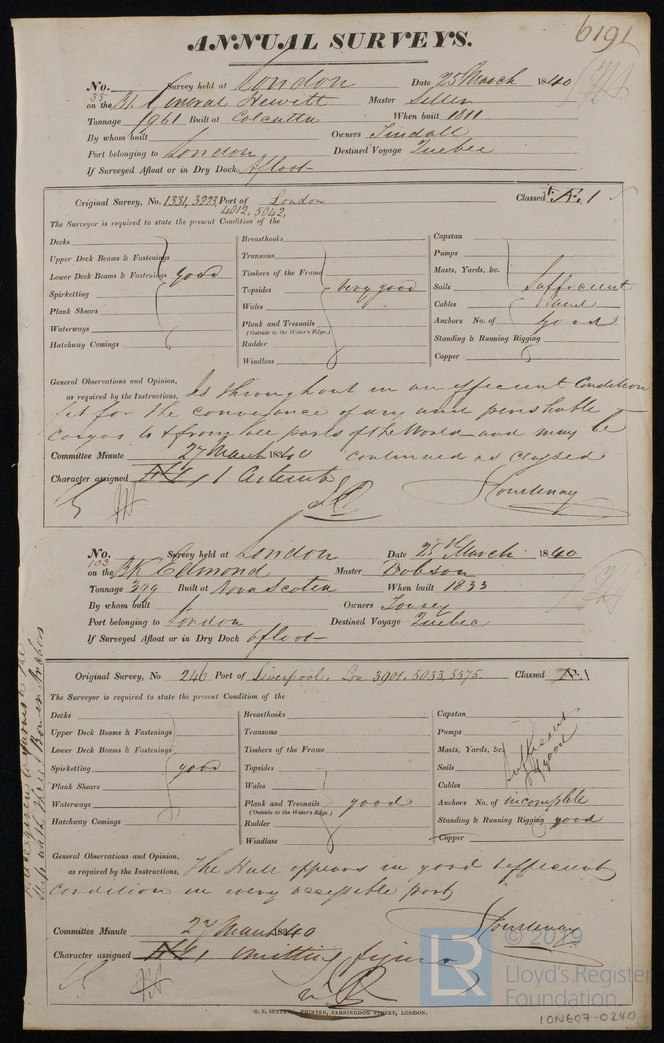 6191
ANNUAL SURVEYS.
No. 55 Survey held at London Date 25 March 1840
on the General Hewitt Master
Tonnage 961 Built at Calcutta When built 1811
By whom built Owners Tindall
Port belonging to London Destined Voyage Quebec
If Surveyed Afloat or in Dry Dock Afloat
Original Survey, No. 1331, 3923, Port of London Classed Æ 1
4012, 5042,
The Surveyor is required to state the present Condition of the
Decks
Upper Deck Beams & Fastenings
Lower Deck Beams & Fastenings good
Spirketting
Plank Shears
Waterways
Hatchway Comings
Breasthooks
Transoms
Timbers of the Frame
Topsides very good
Wales
Plank and Treenails
(Outside to the Water's Edge.)
Rudder
Windlass
Capstan
Pumps
Masts, Yards, &c.
Sails Sufficient
Cables and
Anchors No. of good
Standing & Running Rigging
Copper
General Observations and Opinion, Is throughout in an efficient Condition
as required by the Instructions, fit for the conveyance of dry and perishable
Cargos to & from all parts of the World and may be
continued as classed
Committee Minute 27 March 1840
Character assigned Æ 1
Courtenay
No. 103 Survey held at London Date 25th March 1840
on the Bk Edmond Master Dobson
Tonnage 399 Built at Nova Scotia When built 1833
By whom built Owners
Port belonging to London Destined Voyage Quebec
If Surveyed Afloat or in Dry Dock afloat
Original Survey, No 246 Port of Liverpool, Lon. 3901, 5033, 5575. Classed Æ 1
The Surveyor is required to state the present Condition of the
Decks
Upper Deck Beams & Fastenings
Lower Deck Beams & Fastenings
Spirketting good
Plank Shears
Waterways
Hatchway Comings
Breasthooks
Transoms
Timbers of the Frame
Topsides
Wales
Plank and Treenails good
(Outside to the Water's Edge.)
Rudder
Windlass
Capstan
Pumps
Masts, Yards, &c. Sufficient
Sails & good
Cables
Anchors No. of incomplete
Standing & Running Rigging good
Copper
General Observations and Opinion, The Hull appears in good & efficient
as required by the Instructions, condition in every accessible part
Courtenay
Committee Minute 27 March 1840
Character assigned Æ 1 omitting figure
Ship with three Bower Anchors
G. F. SEYFANG, PRINTER, FARRINGDON STREET, LONDON.
LR
© 2019
Lloyd's Register
Foundation
LON607-0240